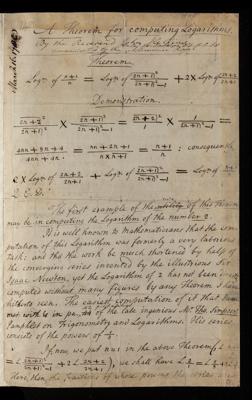 A Theorem for computing Logarithms.
By the Reverend
Theorem.
Log^m of (n+1)/n = Log^m of (2n+1)^2/((2n+1)^2−1) + 2 × Log^m of (2n+2)/(2n+1)
Demonstration.
(2n+2)^2/(2n+1)^2 × (2n+1)^2/((2n+1)^2−1) = (2n+2)^2/1 × 1/((2n+1)^2−1) =
(4nn+8n+4)/(4nn+4n) = (n+1 × n+1)/(n × n+1) = (n+1)/n : consequently
2 × Log^m of (2n+2)/(2n+1) + Log^m of (2n+1)^2/((2n+1)^2−1) = Log^m of (n+1)/n
Q. E. D.
The first example of the of this Theorem
may be in computing the Logarithm of the number 2.
It is well known to Mathematicians that the com-
putation of this Logarithm was formerly a very laborious
task: and tho the work be much shortened by help of
the converging series invented by the illustrious Sir
Isaac Newton, yet the Logarithm of 2 has not been
computed without many figures by any Theorem I have
hitherto seen. The easiest computation of it that I have
met with is in pa. of the late ingenious Mr. Tho. Simpson's
Pamphlet on Trigonometry and Logarithms. His series
consists of the powers of
If now, we put n=1 in the above Theorem
we shall have
Here then, the fractions whose powers the series